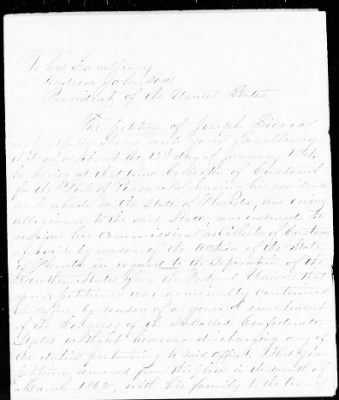 To His Excellency
Andrew Johnson
President of the United States.
The petition of Joseph Sierra
respectfully shows unto your Excellency
that on or about the 12th day of January 1861
he being at that time Collector of Customs
for the Port of Pensacola having his residence
and abode in the State of Florida, and owing
allegiance to the said State, was induced to
resign his Commission as Collector of Customs
by reason of the Action of the State
of Florida in regard to the Separation of the
Southern States from the Federal Union that
your petitioner was nominally continued
in office by reason of a general enactment
of the Congress of the so called Confederate
States without however discharging any of
the duties pertaining to said office. That your
petitioner removed from this place in the month of
March 1862, with his family to the town of